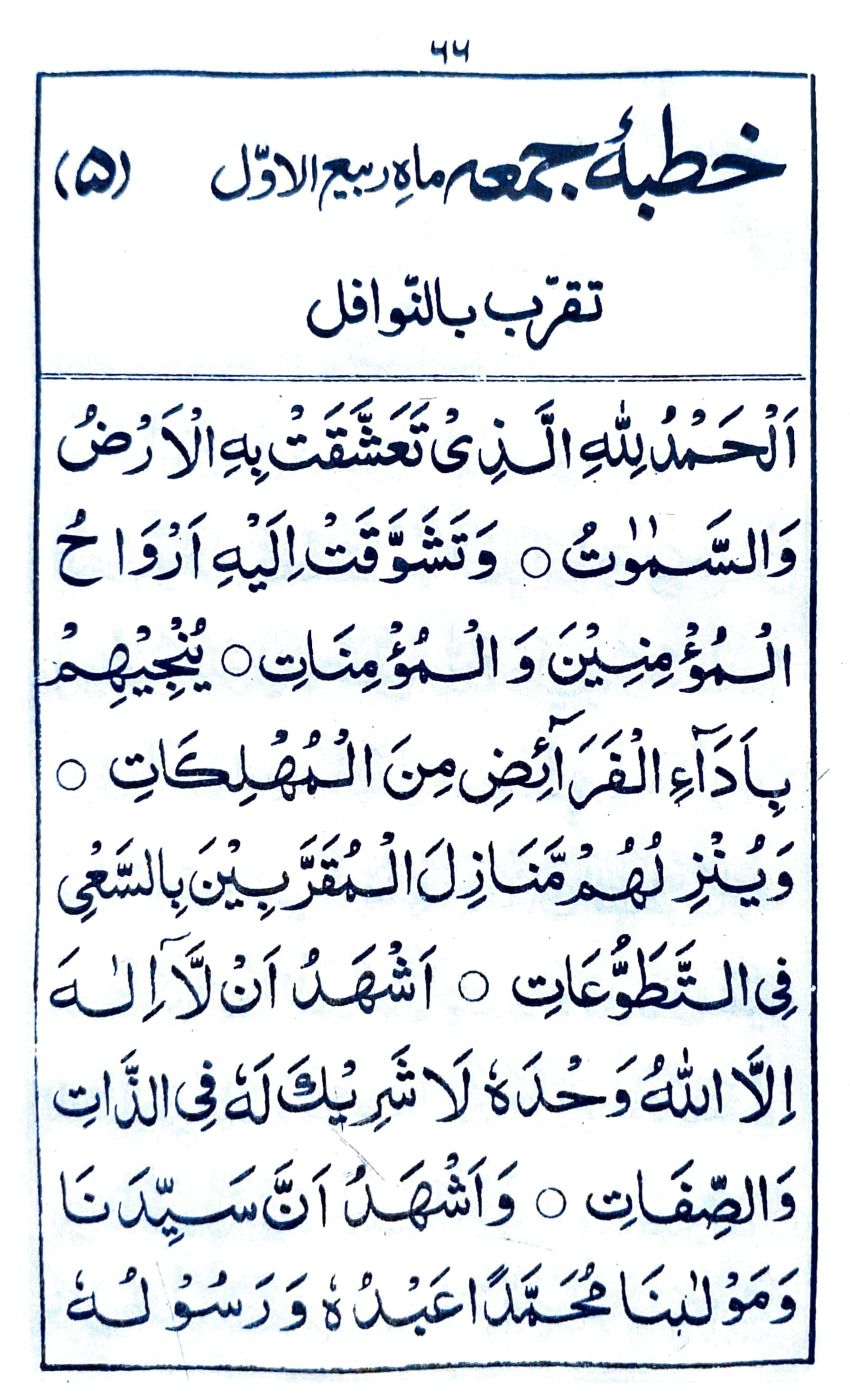 ٦٦
خطبۂ جمعہ ماہِ ربیع الاوّل (۵)
تقرّب بالنّوافل
اَلْحَمْدُ لِلّٰهِ الَّذِىْ تَعَشَّقَتْ بِهِ الْاَرْضُ
وَالسَّمٰوٰتُ ○ وَتَشَوَّقَتْ اِلَيْهِ اَرْوَاحُ
الْمُؤْمِنِيْنَ وَالْمُؤْمِنَاتِ ○ يُنْجِيْهِمْ
بِاَدَآءِ الْفَرَآئِضِ مِنَ الْمُهْلِكَاتِ ○
وَيُنْزِلُهُمْ مَّنَازِلَ الْمُقَرَّبِيْنَ بِالسَّعْىِ
فِى التَّطَوُّعَاتِ ○ اَشْهَدُ اَنْ لَّآ اِلٰهَ
اِلَّا اللّٰهُ وَحْدَهٗ لَا شَرِيْكَ لَهٗ فِى الذَّاتِ
وَالصِّفَاتِ ○ وَاَشْهَدُ اَنَّ سَيِّدَنَا
وَمَوْلٰىنَا مُحَمَّدًا عَبْدُهٗ وَرَسُوْلُهٗ